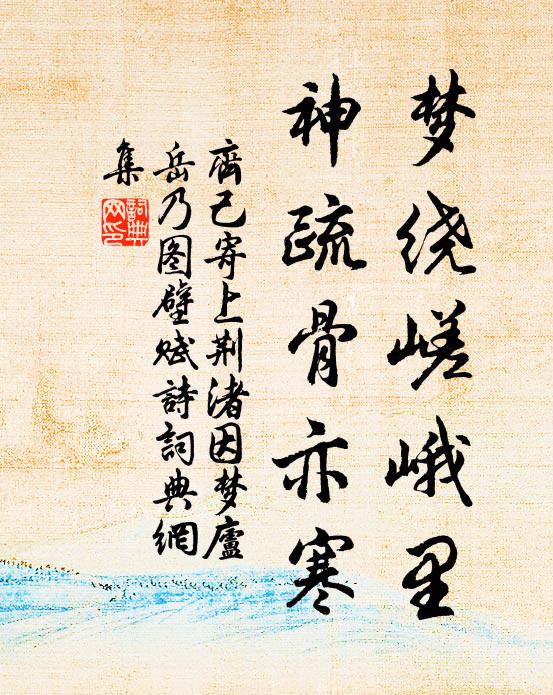 梦绕嵯峨里
神疏骨亦寒
齊己寄上荆渚因梦廬
岳乃图壁赋詩詞典網
集
詞典網印